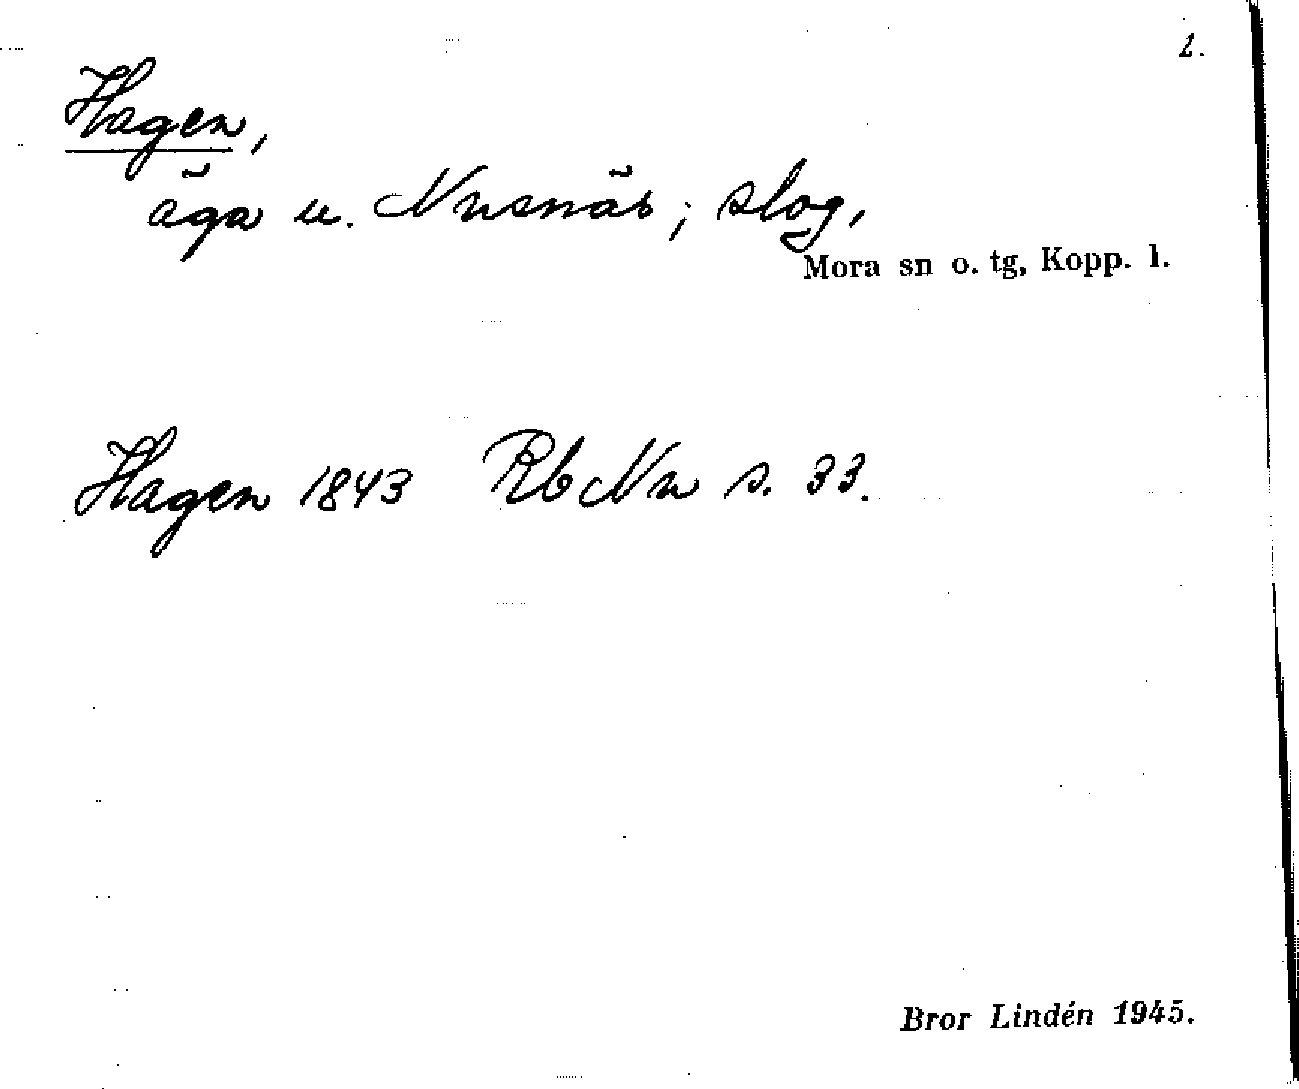 2.
Hagen,
äga u. Nusnäs; slog,
Mora sn o. tg, Kopp. l.
Hagen 1843 Rb Nn s. 33.
Bror Lindén 1945.